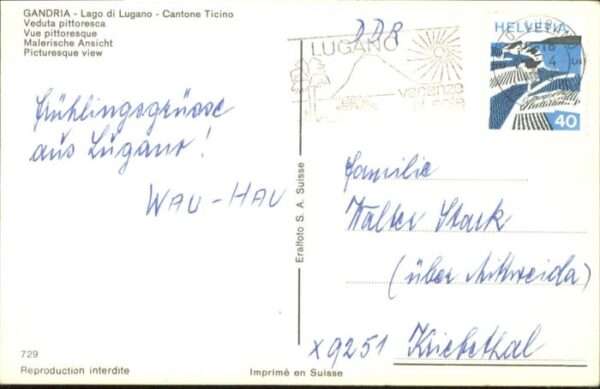 GANDRIA - Lago di Lugano - Cantone Ticino
Veduta pittoresca
Vue pittoresque
Malerische Ansicht
Picturesque view
DDR
LUGANO
vacanze
HELVETIA
40
Frühlingsgrüsse
aus Lugano!
WAU-HAU
Familie
Walter Stark
(über Mittweida)
x9251 Kriebethal
Eralfoto S. A. Suisse
729
Reproduction interdite
Imprimé en Suisse